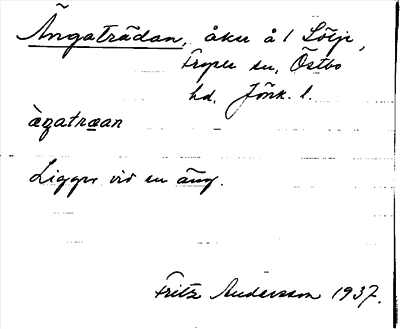 Ängaträdan, åker å 1 Sötje,
Fryele sn, Östbo
hd, Jönk. l.
ä̀ŋatraan
Ligger vid en äng.
Fritz Andersson 1937.